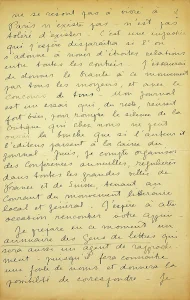 ne se seront pas à vivre à
Paris n'existe pas n'est pas
toléré d'exister. C'est une injustice
que j'espère disparaîtra si l'on
s'adonne à nouer d'étroites relations
entre toutes les contrées. J'essaierai
de donner le branle à ce mouvement
par tous les moyens, et avec le
Concours de tous. Mon Journal
est un essai qui du reste, réussit
fort bien, pour rompre le silence de la
critique qui chez nous ne peut
ouvrir la bouche que si l'auteur et
l'éditeur passent à la caisse du
journal. Puis, je compte organiser
des Conférences annuelles, régulières
dans toutes les grandes villes de
France et de Suisse, tenant au
Courant du mouvement littéraire
local et général. J'espère à cette
occasion rencontrer votre appui.
Je prépare en ce moment un
annuaire des Gens de lettres qui
sera aussi un agent de rapproche
ment puisqu'il fera connaître
une foule de noms et donnera la
possibilité de correspondre. Je